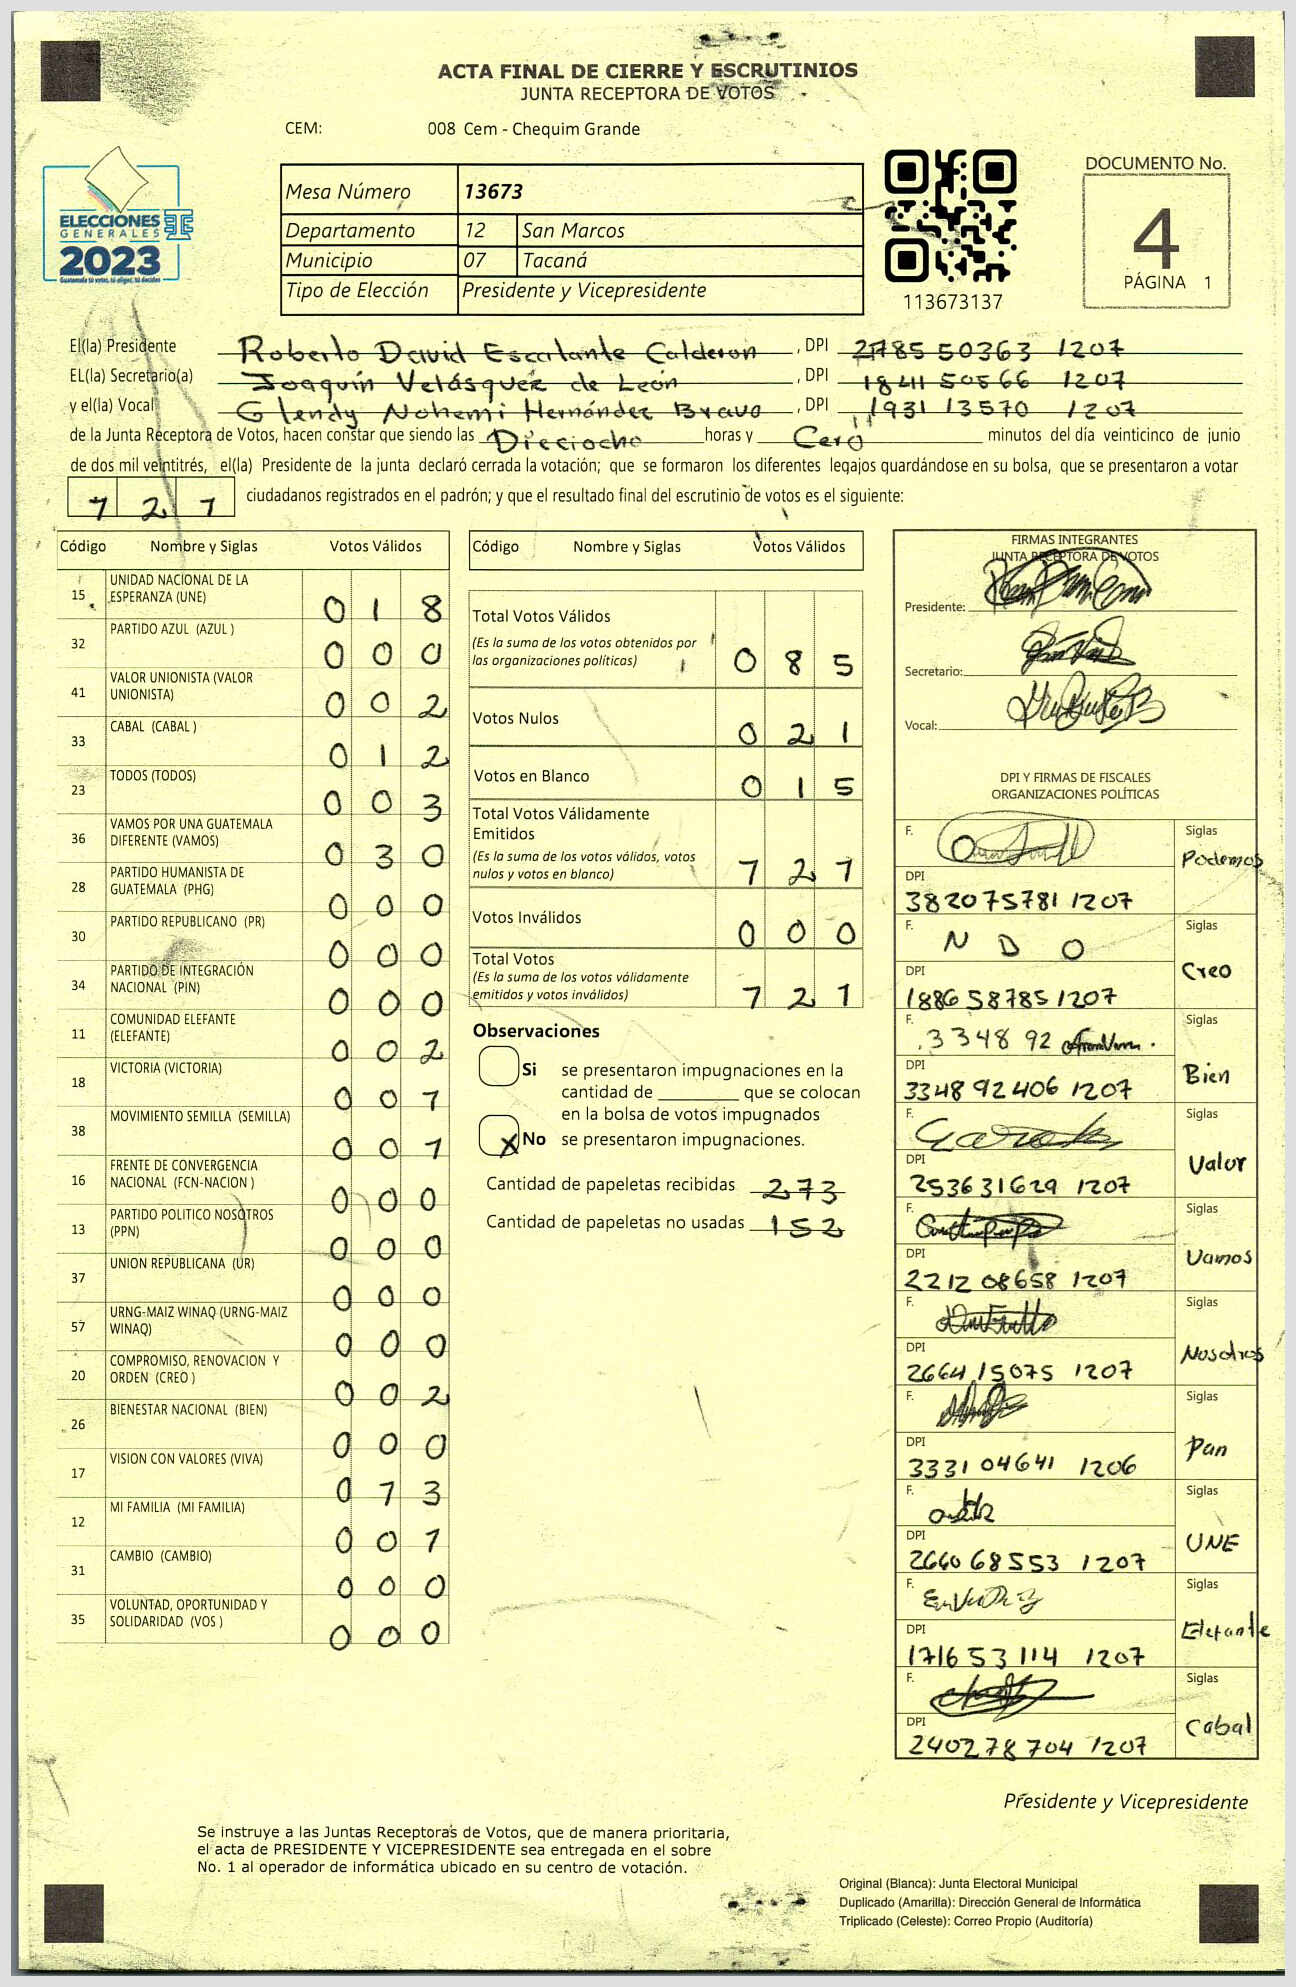 ACTA FINAL DE CIERRE Y ESCRUTINIOS
JUNTA RECEPTORA DE VOTOS
CEM: 008 Cem - Chequim Grande
ELECCIONES
GENERALES
2023
Guatemala tú votas, tú eliges, tú decides
Mesa Número 13673
Departamento 12 San Marcos
Municipio 07 Tacaná
Tipo de Elección Presidente y Vicepresidente
113673137
DOCUMENTO No.
4
PÁGINA 1
El(la) Presidente Roberto David Escalante Calderon, DPI 2785 50363 1207
EL(la) Secretario(a) Joaquín Velásquez de León, DPI 1841 50566 1207
y el(la) Vocal Glendy Nohemi Hernández Bravo, DPI 1931 13570 1207
de la Junta Receptora de Votos, hacen constar que siendo las Dieciocho horas y Cero minutos del día veinticinco de junio
de dos mil veintitrés, el(la) Presidente de la junta declaró cerrada la votación; que se formaron los diferentes legajos guardándose en su bolsa, que se presentaron a votar
1 2 1 ciudadanos registrados en el padrón; y que el resultado final del escrutinio de votos es el siguiente:
Código Nombre y Siglas Votos Válidos
15 UNIDAD NACIONAL DE LA
ESPERANZA (UNE) 0 1 8
32 PARTIDO AZUL (AZUL ) 0 0 0
41 VALOR UNIONISTA (VALOR
UNIONISTA) 0 0 2
33 CABAL (CABAL ) 0 1 2
23 TODOS (TODOS) 0 0 3
36 VAMOS POR UNA GUATEMALA
DIFERENTE (VAMOS) 0 3 0
28 PARTIDO HUMANISTA DE
GUATEMALA (PHG) 0 0 0
30 PARTIDO REPUBLICANO (PR) 0 0 0
34 PARTIDO DE INTEGRACIÓN
NACIONAL (PIN) 0 0 0
11 COMUNIDAD ELEFANTE
(ELEFANTE) 0 0 2
18 VICTORIA (VICTORIA) 0 0 1
38 MOVIMIENTO SEMILLA (SEMILLA) 0 0 1
16 FRENTE DE CONVERGENCIA
NACIONAL (FCN-NACION ) 0 0 0
13 PARTIDO POLITICO NOSOTROS
(PPN) 0 0 0
37 UNION REPUBLICANA (UR) 0 0 0
57 URNG-MAIZ WINAQ (URNG-MAIZ
WINAQ) 0 0 0
20 COMPROMISO, RENOVACION Y
ORDEN (CREO ) 0 0 2
26 BIENESTAR NACIONAL (BIEN) 0 0 0
17 VISION CON VALORES (VIVA) 0 1 3
12 MI FAMILIA (MI FAMILIA) 0 0 1
31 CAMBIO (CAMBIO) 0 0 0
35 VOLUNTAD, OPORTUNIDAD Y
SOLIDARIDAD (VOS ) 0 0 0
Código Nombre y Siglas Votos Válidos
Total Votos Válidos
(Es la suma de los votos obtenidos por
las organizaciones políticas) 0 8 5
Votos Nulos 0 2 1
Votos en Blanco 0 1 5
Total Votos Válidamente
Emitidos
(Es la suma de los votos válidos, votos
nulos y votos en blanco) 1 2 1
Votos Inválidos 0 0 0
Total Votos
(Es la suma de los votos válidamente
emitidos y votos inválidos) 1 2 1
Observaciones
Si se presentaron impugnaciones en la
cantidad de ________ que se colocan
en la bolsa de votos impugnados
X No se presentaron impugnaciones.
Cantidad de papeletas recibidas 273
Cantidad de papeletas no usadas 152
FIRMAS INTEGRANTES
JUNTA RECEPTORA DE VOTOS
Presidente:
Secretario:
Vocal:
DPI Y FIRMAS DE FISCALES
ORGANIZACIONES POLÍTICAS
F. Siglas Podemos
DPI
382075781 1207
F. N D O Siglas Creo
DPI
1886 58785 1207
F. 3348 92 Siglas Bien
DPI
3348 92406 1207
F. Siglas Valor
DPI
253631629 1207
F. Siglas Vamos
DPI
2212 08658 1207
F. Siglas Nosotros
DPI
2664 15075 1207
F. Siglas Pan
DPI
3331 04641 1206
F. Siglas UNE
DPI
2660 68553 1207
F. Siglas Elefante
DPI
1716 53 114 1207
F. Siglas Cabal
DPI
240278704 1207
Presidente y Vicepresidente
Se instruye a las Juntas Receptoras de Votos, que de manera prioritaria,
el acta de PRESIDENTE Y VICEPRESIDENTE sea entregada en el sobre
No. 1 al operador de informática ubicado en su centro de votación.
Original (Blanca): Junta Electoral Municipal
Duplicado (Amarilla): Dirección General de Informática
Triplicado (Celeste): Correo Propio (Auditoría)